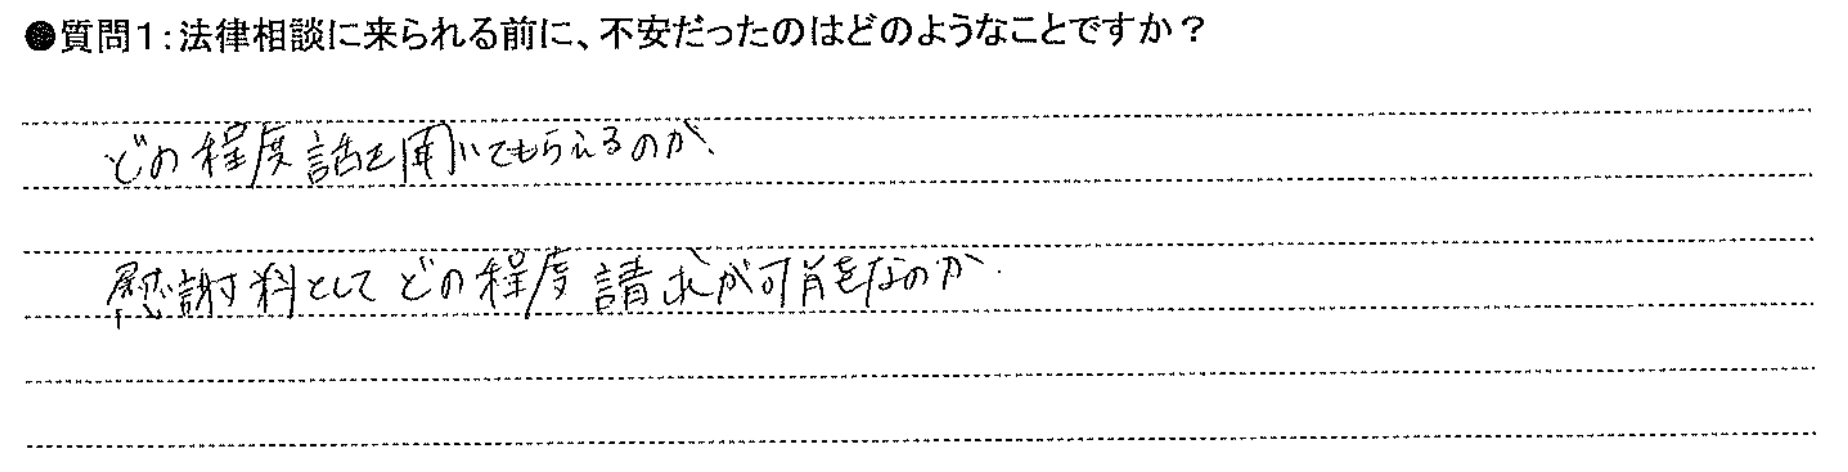 ●質問1:法律相談に来られる前に、不安だったのはどのようなことですか?
どの程度話を聞いてもらえるのか、
慰謝料としてどの程度請求が可能なのか.